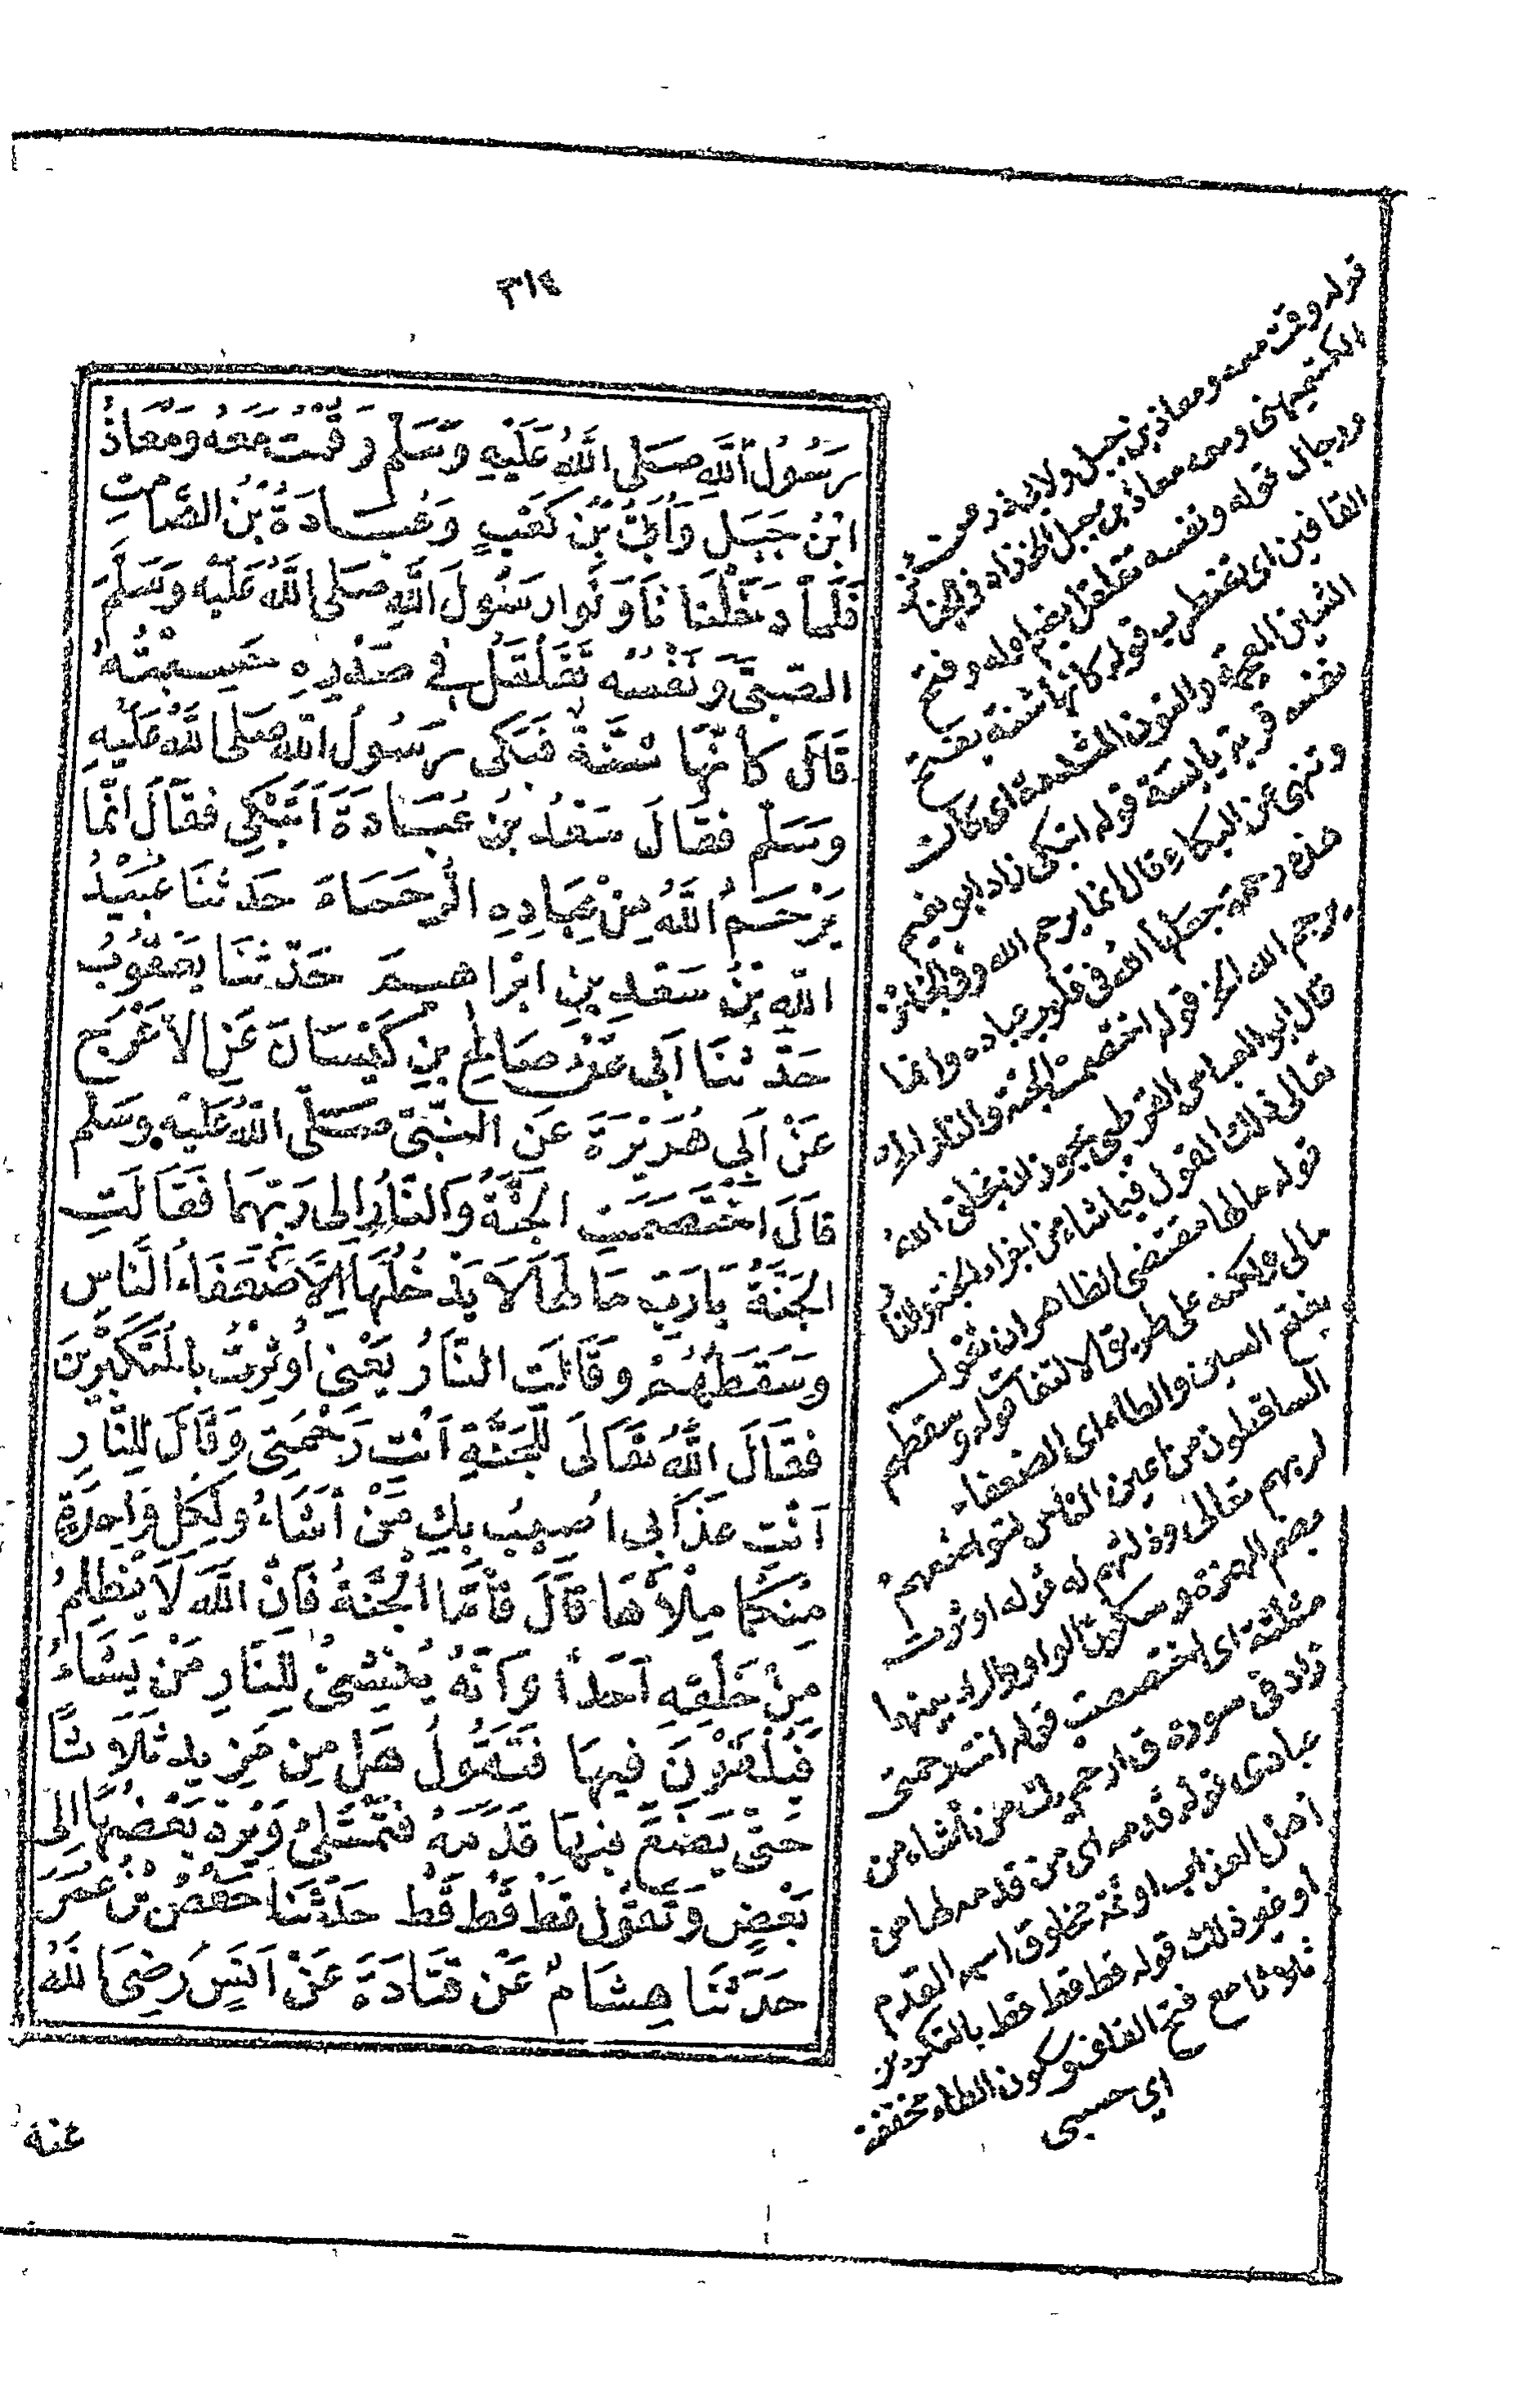 ٣١٤
رَسُولُ اللَّهِ صَلَّى اللَّهُ عَلَيْهِ وَسَلَّمْ وَقُمْتُ مَعَهُ وَمُعَاذُ
ابْنُ جَبَلٍ وَاُبَيُّ بْنُ كَعْبٍ وَعُبَادَةُ بْنُ الصَّامِتِ
فَلَمَّا دَخَلْنَا نَاوَلُوا رَسُولَ اللَّهِ صَلَّى اللَّهُ عَلَيْهِ وَسَلَّمَ
الصَّبِيَّ وَنَفْسُهُ تَقَلْقَلُ فِي صَدْرِهِ حَسِبْتُهُ
قَالَ كَاَنَّهَا شَنَّةٌ فَبَكَى رَسُولُ اللَّهِ صَلَّى اللَّهُ عَلَيْهِ
وَسَلَّمْ فَقَالَ سَعْدُ بْنُ عُبَادَةَ اَتَبْكِي فَقَالَ اِنَّمَا
يَرْحَمُ اللَّهُ مِنْ عِبَادِهِ الرُّحَمَاءَ حَدَّثَنَا عُبَيْدُ
اللَّهِ بْنُ سَعْدِ بْنِ ابْرَاهِيمَ حَدَّثَنَا يَعْقُوبُ
حَدَّثَنَا اَبِي عَنْ صَالِحِ بْنِ كَيْسَانَ عَنِ الاَعْرَجِ
عَنْ اَبِي هُرَيْرَةَ عَنِ النَّبِيِّ صَلَّى اللَّهُ عَلَيْهِ وَسَلَّمَ
قَالَ اخْتَصَمَتِ الْجَنَّةُ وَالنَّارُ اِلَى رَبِّهِمَا فَقَالَتِ
الْجَنَّةُ يَارَبِّ مَا لَهَا لَا يَدْخُلُهَا اِلَّا ضُعَفَاءُ النَّاسِ
وَسَقَطُهُمْ وَقَالَتِ النَّارُ يَعْنِي اُوثِرْتُ بِالْمُتَكَبِّرِينَ
فَقَالَ اللَّهُ تَعَالَى لِلْجَنَّةِ اَنْتِ رَحْمَتِي وَقَالَ لِلنَّارِ
اَنْتِ عَذَابِي اُصِيبُ بِكِ مَنْ اَشَاءُ وَلِكُلِّ وَاحِدَةٍ
مِنْكُمَا مِلْؤُهَا قَالَ فَاَمَّا الْجَنَّةُ فَاِنَّ اللَّهَ لَا يَظْلِمُ
مِنْ خَلْقِهِ اَحَدًا وَاَنَّهُ يُنْشِئُ لِلنَّارِ مَنْ يَشَاءُ
فَيُلْقَوْنَ فِيهَا فَتَقُولُ هَلْ مِنْ مَزِيدٍ ثَلَاثًا
حَتَّى يَضَعَ فِيهَا قَدَمَهُ فَتَمْتَلِئُ وَيُرَدُّ بَعْضُهَا اِلَى
بَعْضٍ وَتَقُولُ قَطْ قَطْ قَطْ حَدَّثَنَا حَفْصُ بْنُ عُمَرَ
حَدَّثَنَا هِشَامٌ عَنْ قَتَادَةَ عَنْ اَنَسٍ رَضِيَ اللَّهُ
عنه
قوله وقمت معه ومعاذ بن جبل ولابي ذر عن
الكشميهني ومعه معاذ بن جبل الخ زاد في الجنائز
ورجال قوله ونفسه تقلقل بضم اوله وفتح
القافين اى تضطرب قوله كانها شنة بفتح
الشين المعجمة والنون المشددة اى كأن
نفسه قربة يابسة قوله اتبكى زاد ابو نعيم
وتنهى عن البكاء وقال انما يرحم الله وفي الجنائز
هذه رحمة جعلها الله في قلوب عباده وانما
يرحم الله الخ قوله اختصمت الجنة والنار الخ
قال ابو العباس القرطبى يجوز ان يخلق الله
تعالى ذلك القول فيما شاء من اجزاء الجنة والنار
قوله ما لها مقتضى الظاهر ان تقول
مالى ولكنه على طريق الالتفات قوله وسقطهم
بفتح السين والطاء اى الضعفاء
الساقطون من اعين الناس لتواضعهم
لربهم تعالى وذلتهم له قوله اوثرت
بضم الهمزة وسكون الواو والراء بينهما
مثلثة اى اختصصت قوله انت رحمتى
زاد في سورة ق ارحم بك من اشاء من
عبادى قوله قدمه اى من قدمه لها من
اهل العذاب او ثمة مخلوق اسمه القدم
او نحو ذلك قوله قط قط قط بالتكرير
ثلاثا مع فتح القاف وسكون الطاء مخففة
اي حسبى